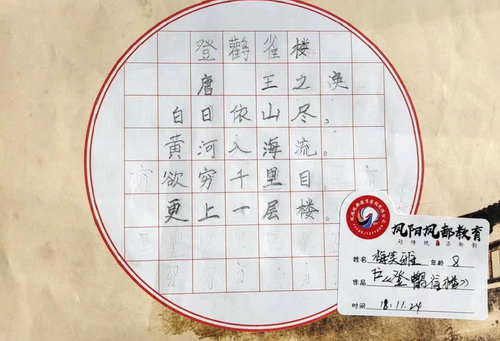 登鸛雀楼
唐 王之涣
白日依山尽。
黄河入海流。
欲穷千里目。
更上一层楼。
凤阳凤都教育
姓名
年龄 8
作品
时间 18.11.24